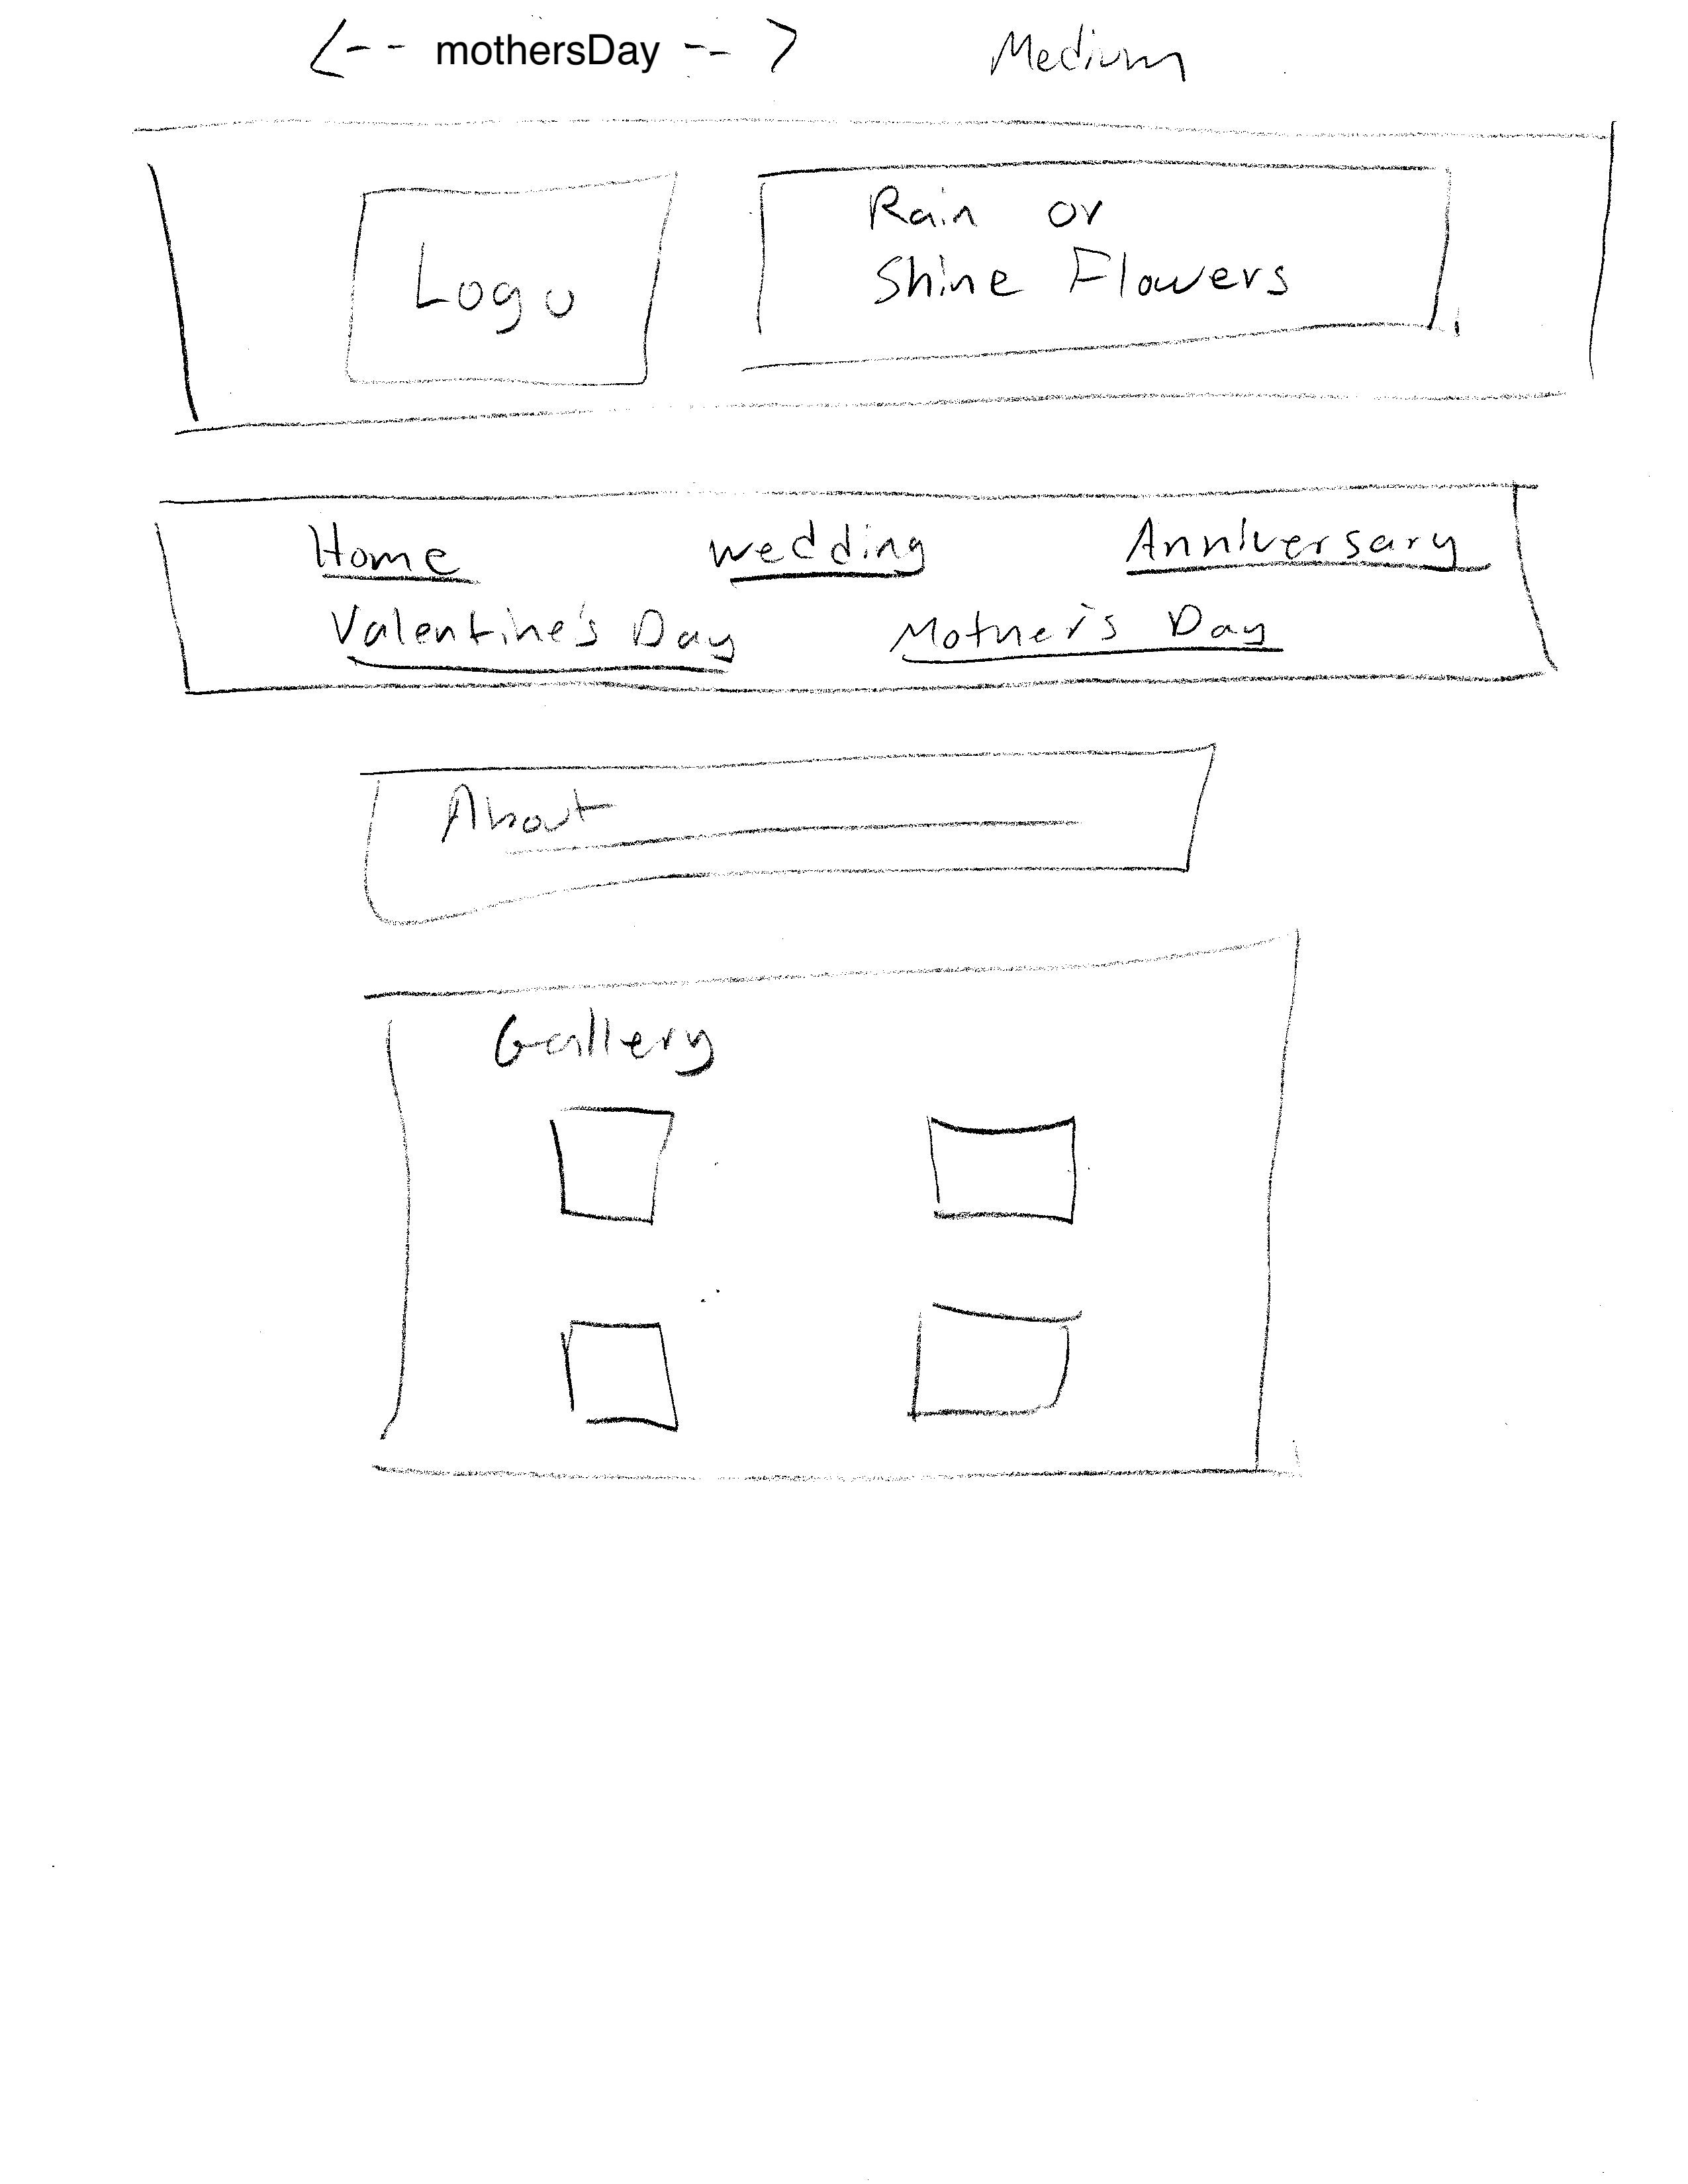 <-- mothersDay --> Medium
Logo
Rain or
Shine Flowers
Home wedding Anniversary
Valentine's Day Mother's Day
About
Gallery